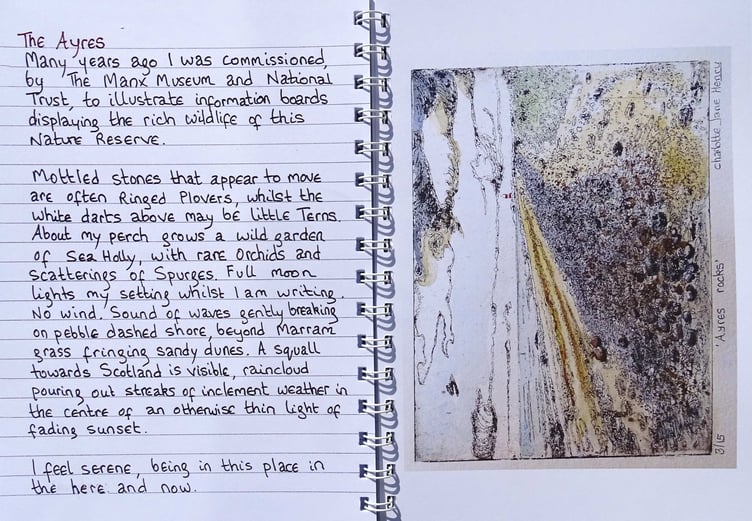 The Ayres
Many years ago I was commissioned,
by The Manx Museum and National
Trust, to illustrate information boards
displaying the rich wildlife of this
Nature Reserve.
Mottled stones that appear to move
are often Ringed Plovers, whilst the
white darts above may be little Terns.
About my perch grows a wild garden
of Sea Holly, with rare Orchids and
scatterings of Spurges. Full moon
lights my setting whilst I am writing.
No wind. Sound of waves gently breaking
on pebble dashed shore, beyond Marram
grass fringing sandy dunes. A squall
towards Scotland is visible, raincloud
pouring out streaks of inclement weather in
the centre of an otherwise thin light of
fading sunset.
I feel serene, being in this place in
the here and now.
3/15 'Ayres rocks' Charlotte Jane